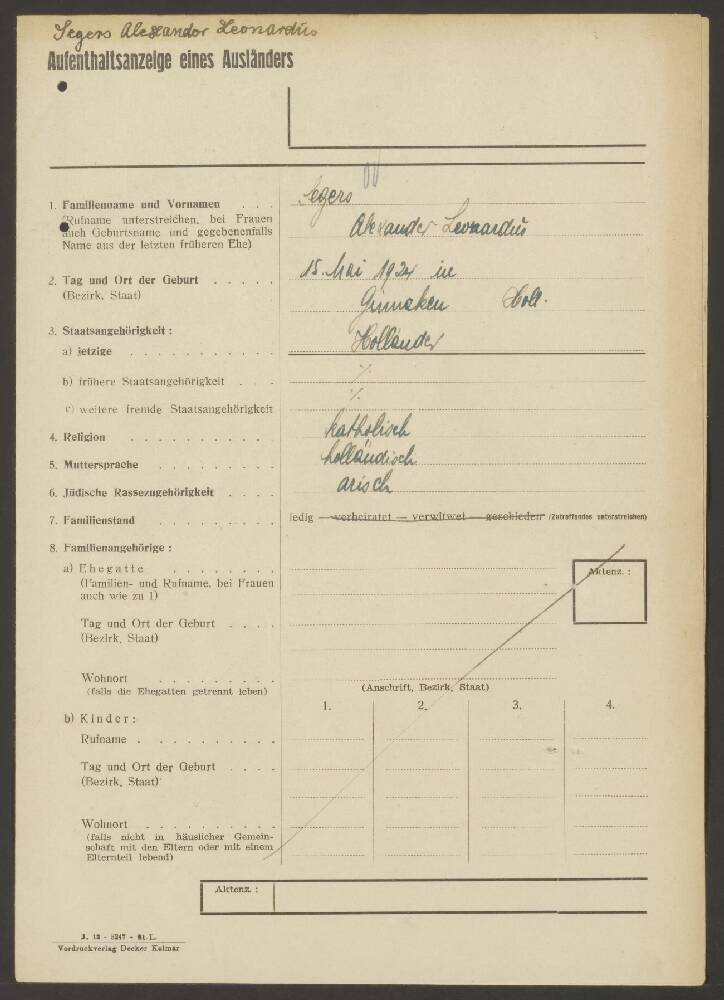 Segers Alexandor Leonardus
Aufenthaltsanzeige eines Ausländers
1. Familienname und Vornamen . . . Segers
(Rufname unterstreichen, bei Frauen
auch Geburtsname und gegebenenfalls Alexander Leonardus
Name aus der letzten früheren Ehe)
2. Tag und Ort der Geburt . . . . . 15. Mai 1924 in
(Bezirk, Staat) Ginneken Holl.
3. Staatsangehörigkeit :
a) jetzige . . . . . . . . . . Holländer
b) frühere Staatsangehörigkeit . . . ./.
c) weitere fremde Staatsangehörigkeit ./.
4. Religion . . . . . . . . . . katholisch
5. Muttersprache . . . . . . . . holländisch
6. Jüdische Rassezugehörigkeit . . . . arisch
7. Familienstand . . . . . . . . ledig — verheiratet — verwitwet — geschieden (Zutreffendes unterstreichen)
8. Familienangehörige :
a) Ehegatte . . . . . . .
(Familien- und Rufname, bei Frauen
auch wie zu 1)
Aktenz. :
Tag und Ort der Geburt . . . .
(Bezirk, Staat)
Wohnort . . . . . . . . .
(falls die Ehegatten getrennt leben)
(Anschrift, Bezirk, Staat)
b) Kinder: 1. 2. 3. 4.
Rufname . . . . . . . . . .
Tag und Ort der Geburt . . . .
(Bezirk, Staat)
Wohnort . . . . . . . . .
(falls nicht in häuslicher Gemein-
schaft mit den Eltern oder mit einem
Elternteil lebend)
Aktenz. :
J. 12 - 5247 - 41. L.
Vordruckverlag Decker Kolmar